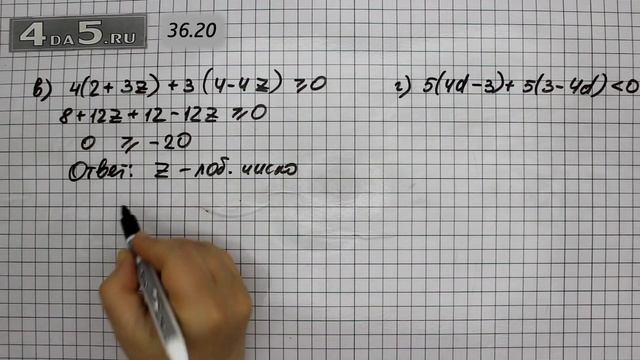 4DA5.RU
36.20
в) 4(2+3z)+3(4-4z) ⩾0
8+12z+12-12z ⩾0
0 ⩾ -20
Ответ: z – люб. число
г) 5(4d-3)+5(3-4d)<0